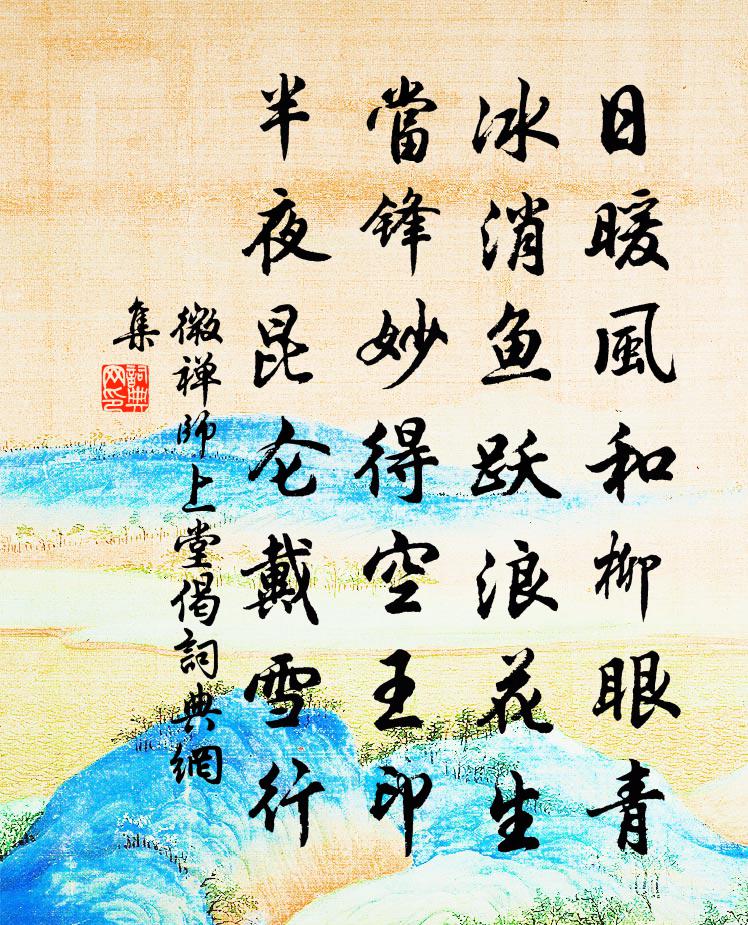 日暖風和柳眼青
冰消魚跃浪花生
當鋒妙得空王印
半夜昆仑戴雪行
微禅師上堂偈詞典網
集
詞典
网印